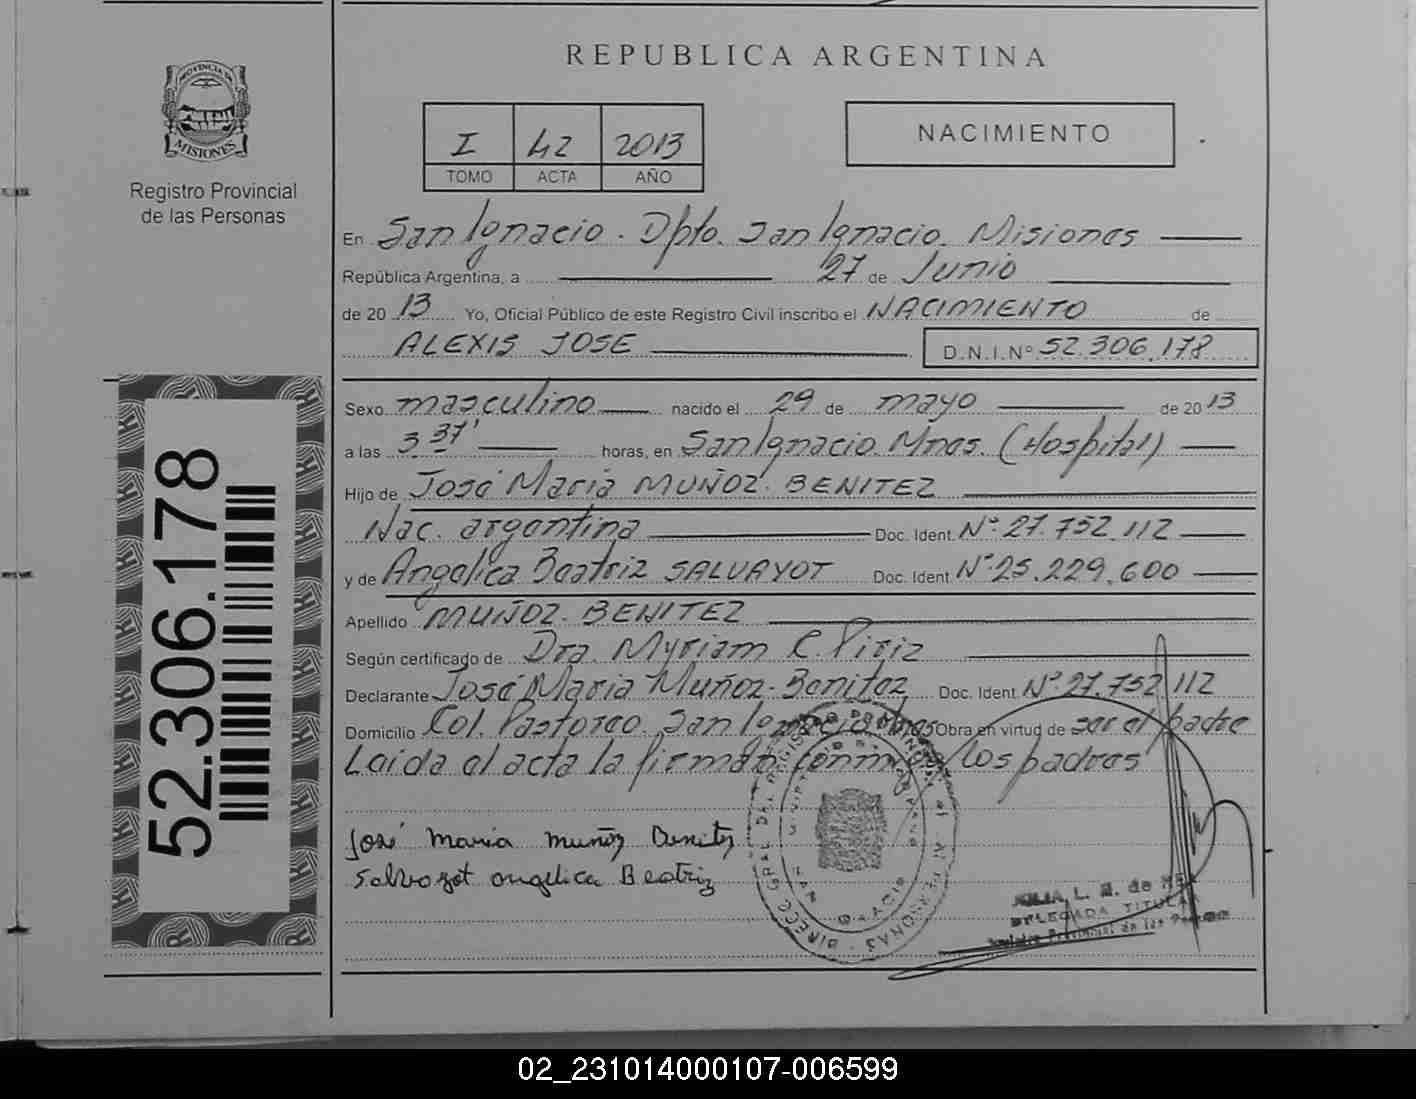 PROVINCIA DE
MISIONES
Registro Provincial
de las Personas
52.306.178
REPUBLICA ARGENTINA
I 42 2013
TOMO ACTA AÑO
NACIMIENTO
En San Ignacio. Dpto. San Ignacio. Misiones
República Argentina, a 27 de Junio
de 2013 Yo, Oficial Público de este Registro Civil inscribo el NACIMIENTO de
ALEXIS JOSE D.N.I.Nº 52.306.178
Sexo masculino nacido el 29 de mayo de 2013
a las 3 37' horas, en San Ignacio. Mnes. (Hospital)
Hijo de José Maria MUÑOZ. BENITEZ
Nac. argentina Doc. Ident. Nº 27.752.112
y de Angelica Beatriz SALVAYOT Doc. Ident. Nº 25.229.600
Apellido MUÑOZ. BENITEZ
Según certificado de Dra. Myriam C. Piriz
Declarante José Maria Muñoz-Benitez Doc. Ident. Nº 27.752.112
Domicilio Col. Pastoreo. San Ignacio. Mnes Obra en virtud de ser el padre
Leida el acta la firman conmigo los padres
José Maria Muñoz Benitez
Salvozot Angelica Beatriz
JULIA L. de
DELEGADA TITULAR
Registro Provincial de las Personas
02_231014000107-006599